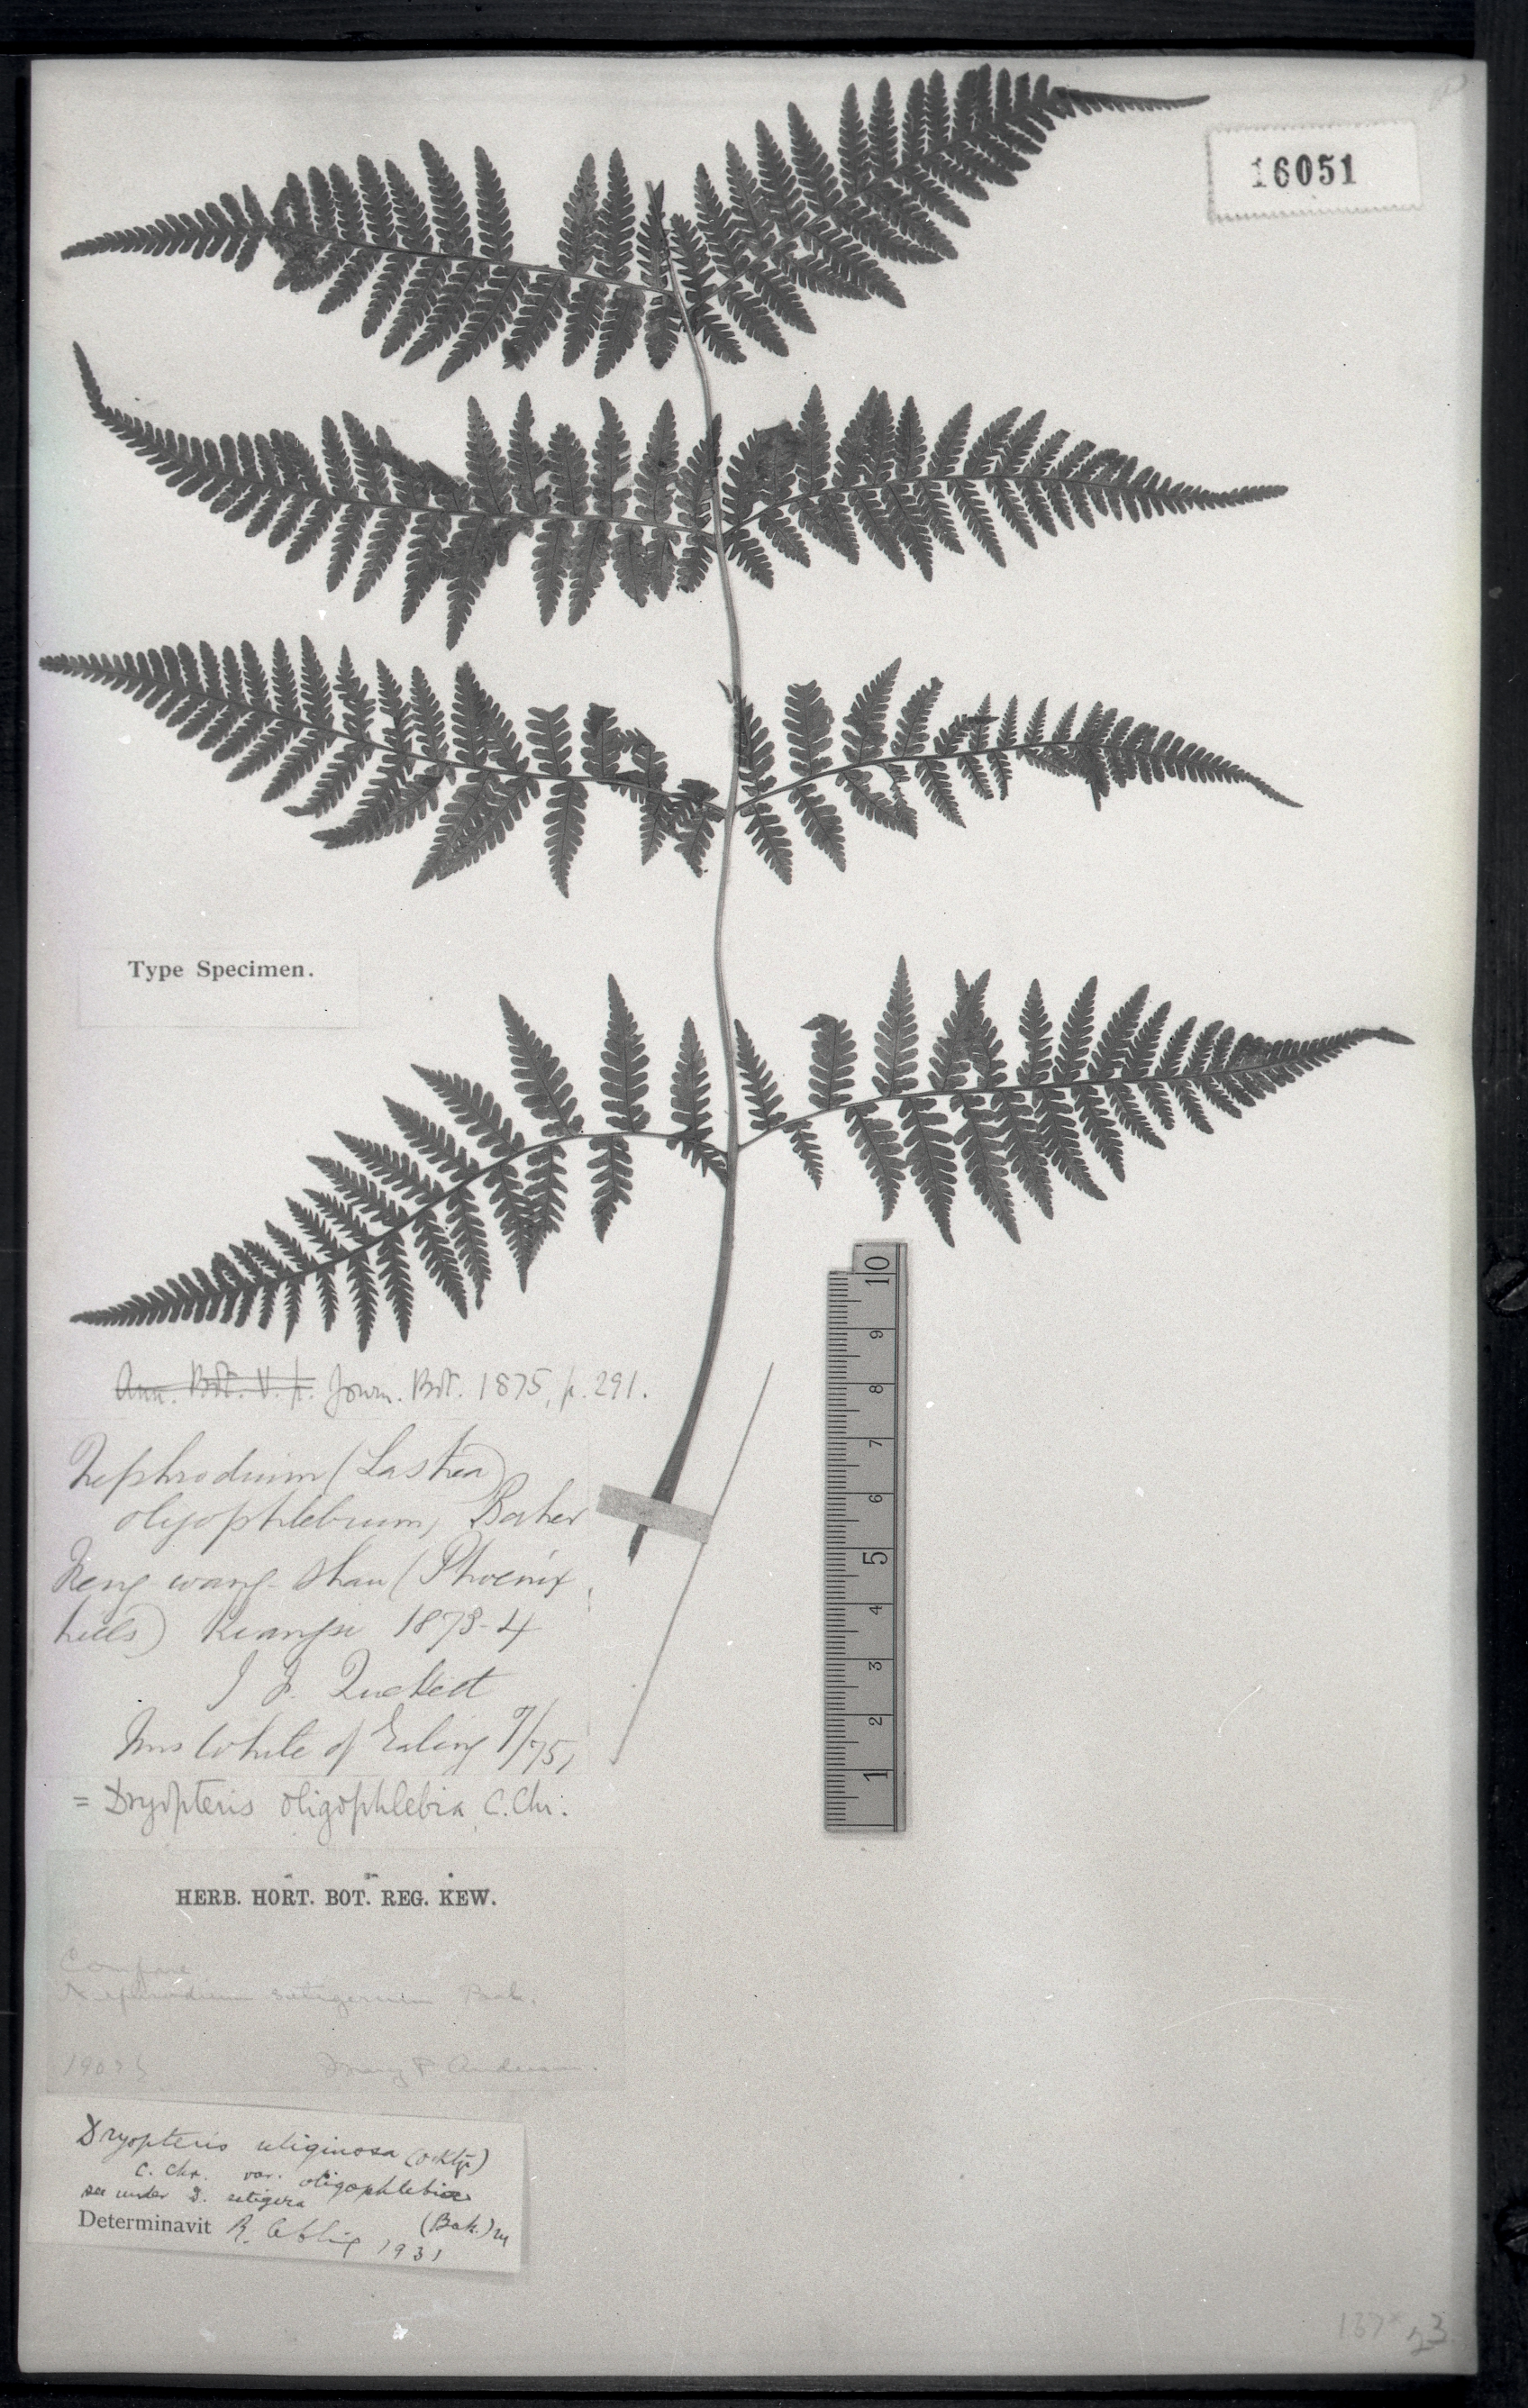 16051
Type Specimen.
Ann. Bot. V. p. Journ. Bot. 1875, p. 291.
Nephrodium (Lastrea)
oligophlebium, Baker
wang-shan (Phoenix
hills) Kiangsi 1873-4
J F. Quekett
Mrs White of Ealing 9/75,
= Dryopteris oligophlebia C. Chr.
HERB. HORT. BOT. REG. KEW.
Compare
Nephrodium setigerum Bak.
Mary P. Anderson.
Dryopteris uliginosa (O.Ktze)
C. Chr. var. oligophlebia
see under D. setigera
(Bak.) m
Determinavit R. C. Ching 1931
10
9
8
7
6
5
4
3
2
1